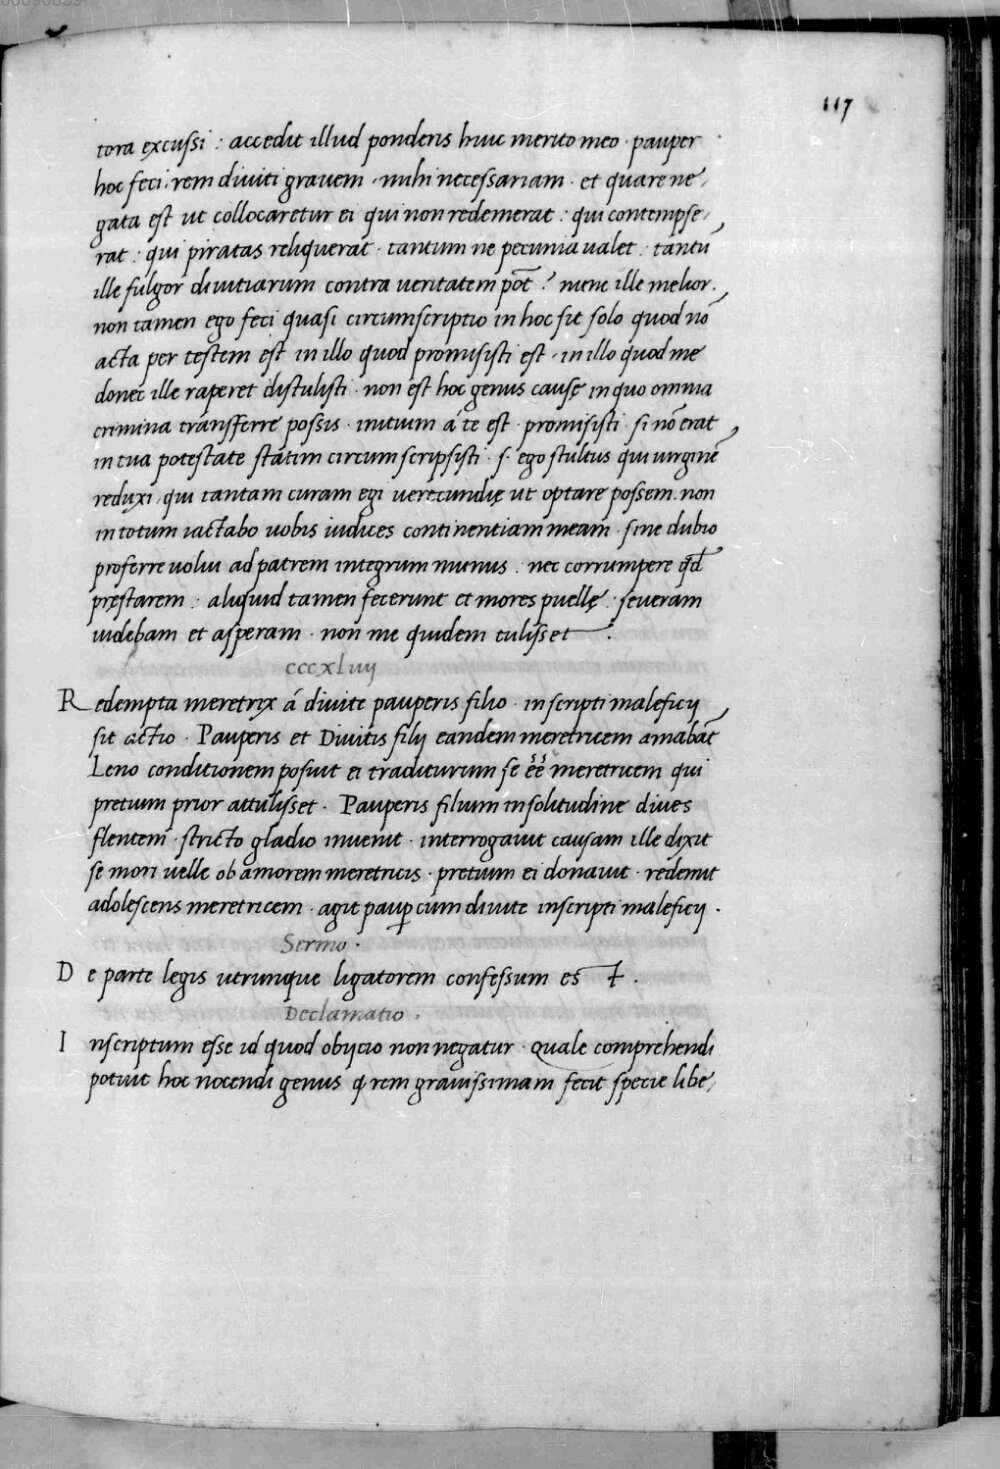 00090839
117
tora excussi : accedit illud ponderis huic merito meo · pauper
hoc feci · rem diviti gravem · mihi necessariam · et quare ne,
gata est ut collocaretur ei qui non redemerat : qui contempse,
rat : qui piratas reliquerat · tantum ne pecunia valet · tantũ
ille fulgor divitiarum contra veritatem põt ? nunc ille melior.
non tamen ego feci quasi circumscriptio in hoc sit solo quod nõ
acta per testem est in illo quod promisisti est · in illo quod me
donec ille raperet distulisti · non est hoc genus causę in quo omnia
crimina transferre possis · initium á te est · promisisti · si nõ erat
in tua potestate statim circumscripsisti · s. ego stultus qui virginẽ
reduxi · qui tantam curam egi verecundię ut optare possem . non
in totum iactabo vobis iudices continentiam meam · sine dubio
proferre volui ad patrem integrum munus . nec corrumpere qđ
pręstarem : aliquid tamen fecerunt et mores puellę : severam
videbam et asperam · non me quidem tulisset .
cccxlvij
Redempta meretrix á divite pauperis filio · inscripti maleficij
sit actio · Pauperis et Divitis filij eandem meretricem amabãt
Leno conditionem posuit ei traditurum se ẽẽ meretricem qui
pretium prior attulisset · Pauperis filium in solitudine dives
flentem · stricto gladio invenit · interrogavit causam ille dixit
se mori velle ob amorem meretricis · pretium ei donavit · redemit
adolescens meretricem · agit paup cum divite inscripti maleficij .
Sermo ·
De parte legis utrunque ligatorem confessum es ⁊ .
Declamatio .
Inscriptum esse id quod obijcio non negatur · Quale comprehendi
potuit hoc nocendi genus q rem gravissimam fecit specie libe,